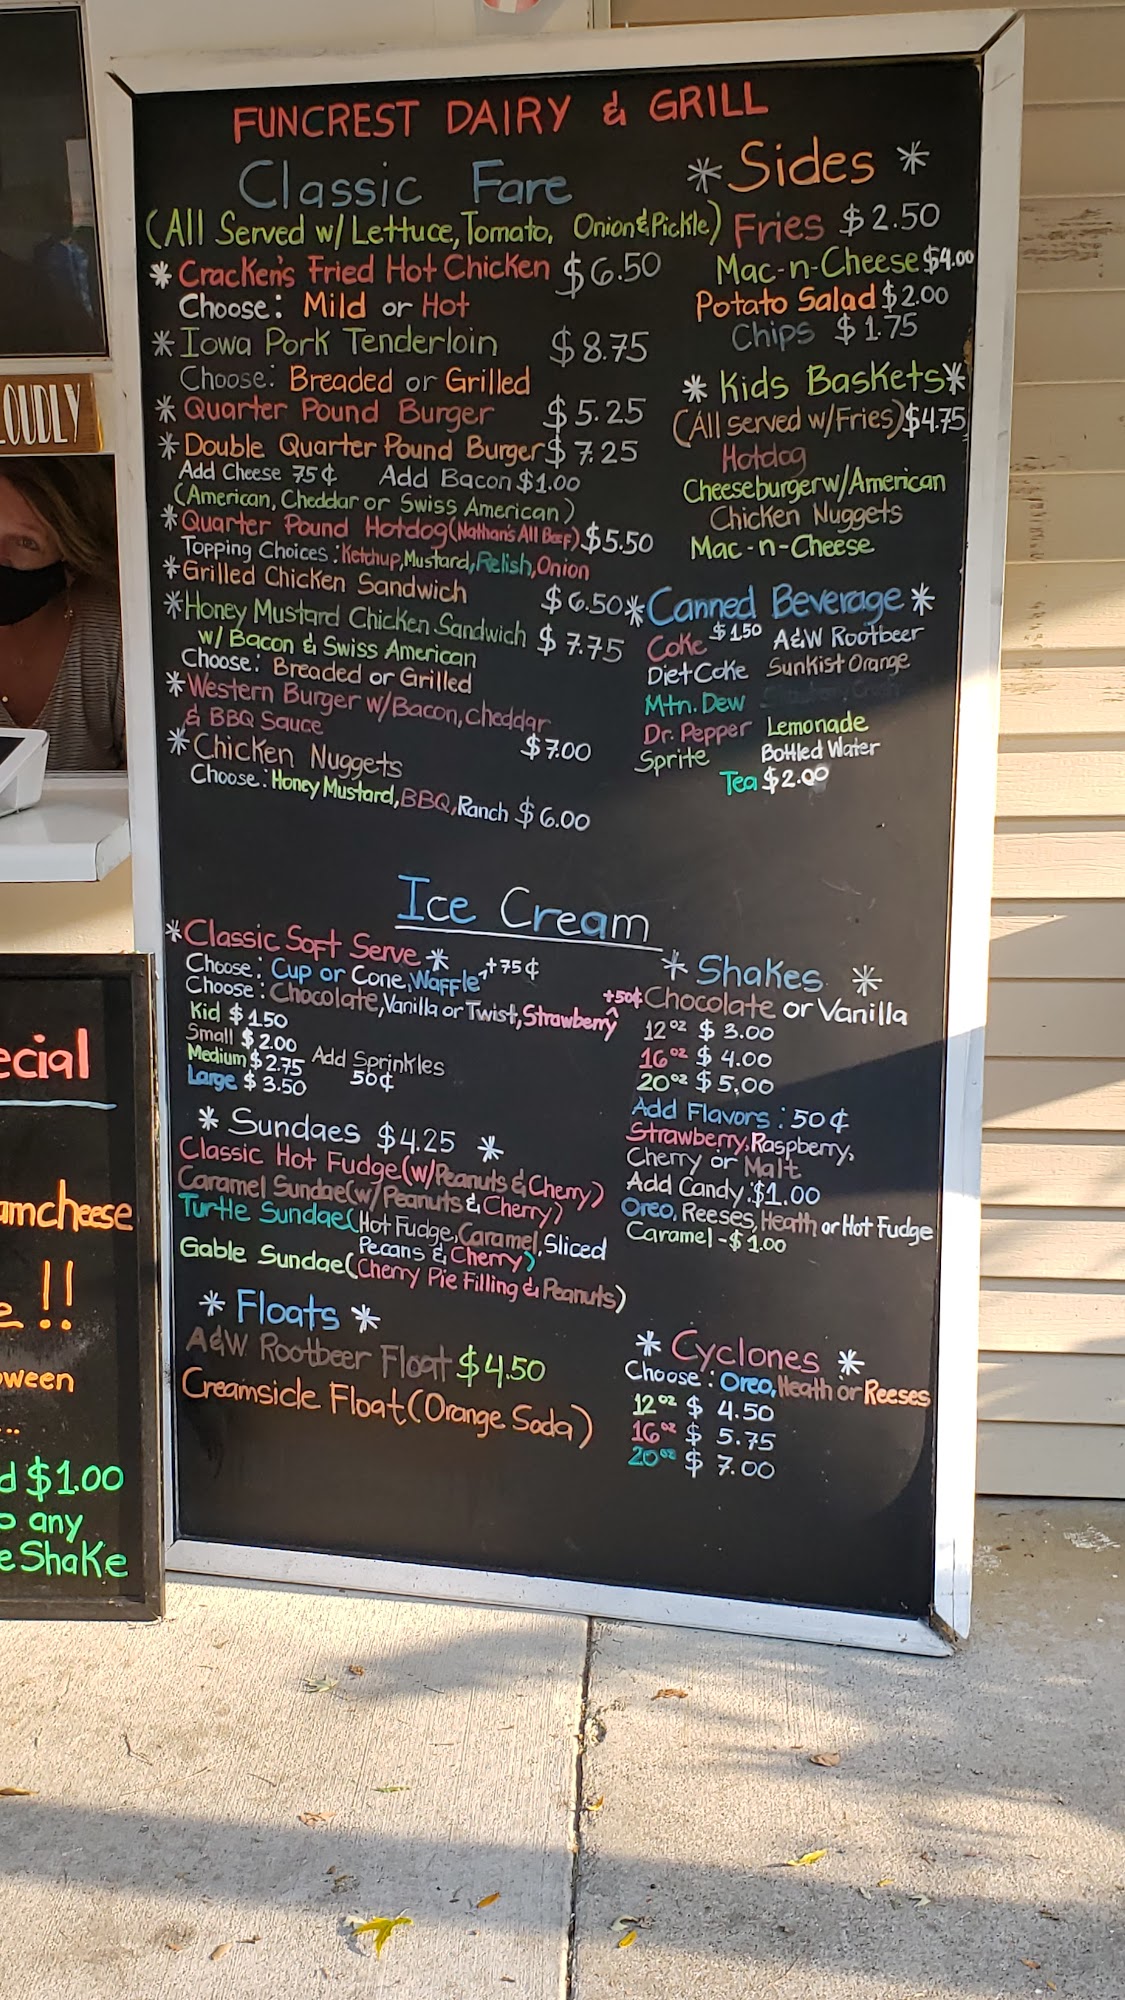 FUNCREST DAIRY & GRILL
Classic Fare
(All Served w/ Lettuce, Tomato, Onion & Pickle)
* Cracken's Fried Hot Chicken $6.50
Choose: Mild or Hot
* Iowa Pork Tenderloin $8.75
Choose: Breaded or Grilled
* Quarter Pound Burger $5.25
* Double Quarter Pound Burger $7.25
Add Cheese 75¢ Add Bacon $1.00
(American, Cheddar or Swiss American)
* Quarter Pound Hotdog (Nathan's All Beef) $5.50
Topping Choices: Ketchup, Mustard, Relish, Onion
* Grilled Chicken Sandwich $6.50
* Honey Mustard Chicken Sandwich $7.75
w/ Bacon & Swiss American
Choose: Breaded or Grilled
* Western Burger w/ Bacon, Cheddar
& BBQ Sauce $7.00
* Chicken Nuggets
Choose: Honey Mustard, BBQ, Ranch $6.00
* Sides *
Fries $2.50
Mac-n-Cheese $4.00
Potato Salad $2.00
Chips $1.75
* Kids Baskets *
(All served w/Fries) $4.75
Hotdog
Cheeseburger w/American
Chicken Nuggets
Mac-n-Cheese
* Canned Beverage *
Coke $1.50 A&W Rootbeer
Diet Coke Sunkist Orange
Mtn. Dew
Dr. Pepper Lemonade
Sprite Bottled Water
Tea $2.00
Ice Cream
* Classic Soft Serve *
Choose: Cup or Cone, Waffle +75¢
Choose: Chocolate, Vanilla or Twist, Strawberry +50¢
Kid $1.50
Small $2.00
Medium $2.75 Add Sprinkles
Large $3.50 50¢
* Sundaes $4.25 *
Classic Hot Fudge (w/Peanuts & Cherry)
Caramel Sundae (w/ Peanuts & Cherry)
Turtle Sundae (Hot Fudge, Caramel, Sliced
Pecans & Cherry)
Gable Sundae (Cherry Pie Filling & Peanuts)
* Floats *
A&W Rootbeer Float $4.50
Creamsicle Float (Orange Soda)
* Shakes *
Chocolate or Vanilla
12oz $3.00
16oz $4.00
20oz $5.00
Add Flavors: 50¢
Strawberry, Raspberry,
Cherry or Malt
Add Candy: $1.00
Oreo, Reeses, Heath or Hot Fudge
Caramel - $1.00
* Cyclones *
Choose: Oreo, Heath or Reeses
12oz $4.50
16oz $5.75
20oz $7.00
OUDLY
ecial
amcheese
e !!
ween
...
d $1.00
o any
e Shake